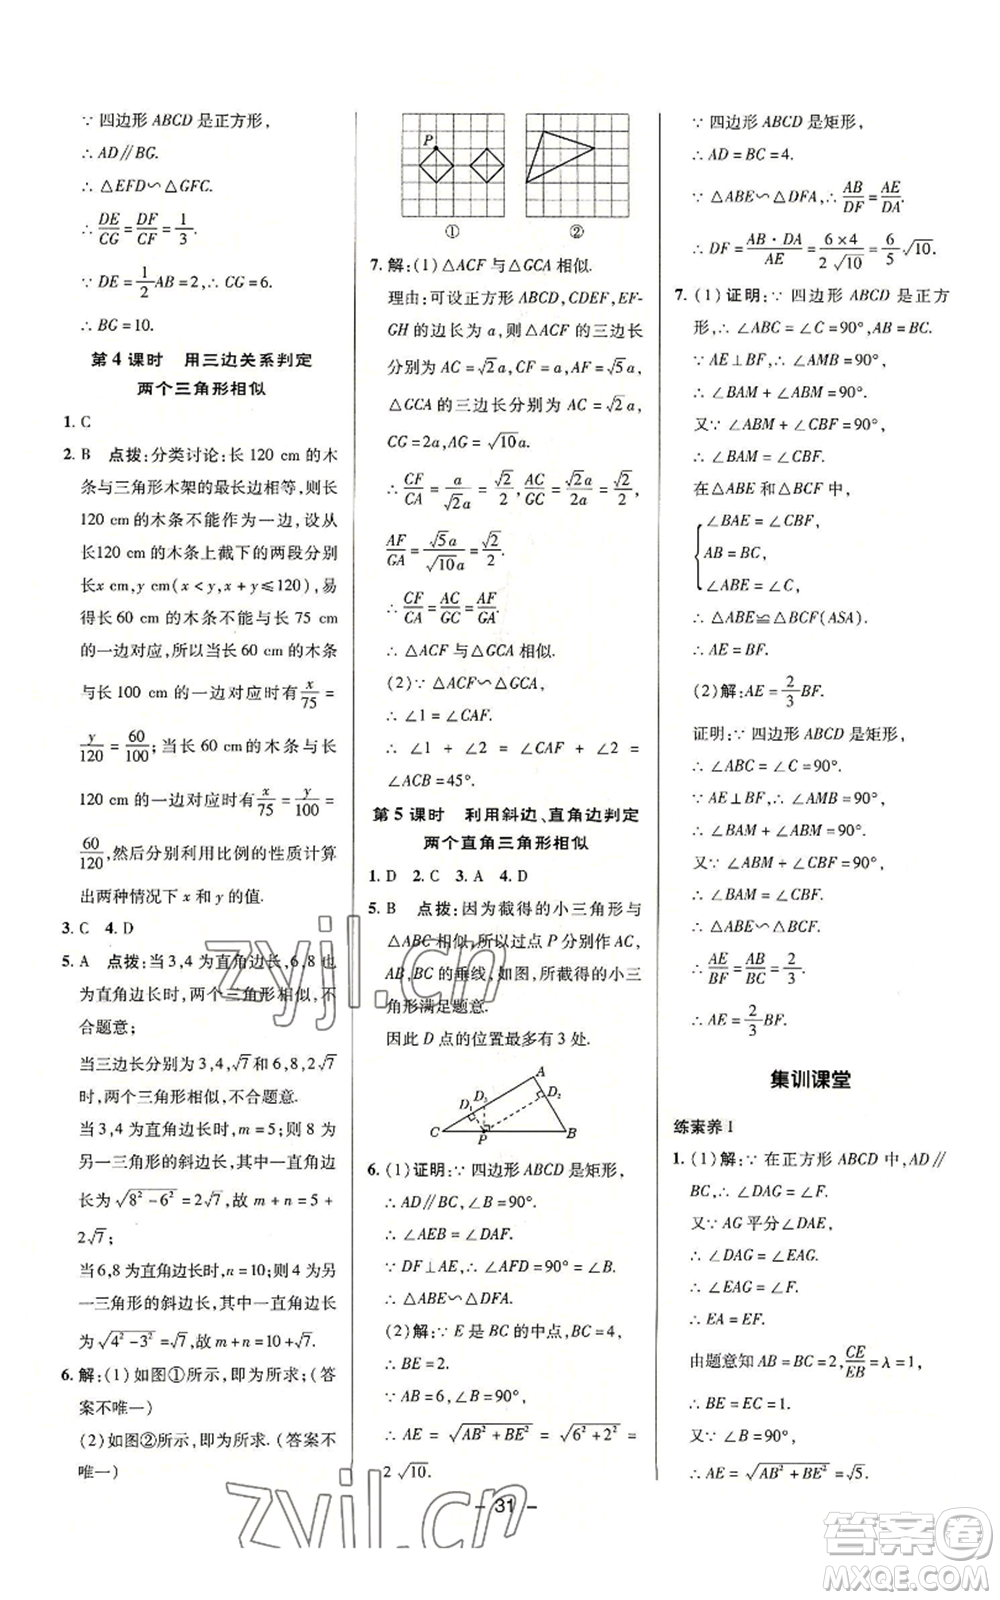 ∵ 四边形 ABCD 是正方形，
∴ AD∥BG.
∴ △EFD∽△GFC.
∴ DE/CG = DF/CF = 1/3.
∵ DE = 1/2 AB = 2, ∴ CG = 6.
∴ BG = 10.
第 4 课时 用三边关系判定
两个三角形相似
1. C
2. B 点拨：分类讨论：长 120 cm 的木
条与三角形木架的最长边相等，则长
120 cm 的木条不能作为一边，设从
长120 cm 的木条上截下的两段分别
长x cm, y cm(x < y, x + y ≤ 120)，易
得长 60 cm 的木条不能与长 75 cm
的一边对应，所以当长 60 cm 的木条
与长 100 cm 的一边对应时有 x/75 =
y/120 = 60/100；当长 60 cm 的木条与长
120 cm 的一边对应时有 x/75 = y/100 =
60/120，然后分别利用比例的性质计算
出两种情况下 x 和 y 的值.
3. C 4. D
5. A 点拨：当 3,4 为直角边长，6,8 也
为直角边长时，两个三角形相似，不
合题意；
当三边长分别为 3,4,√7 和 6,8,2√7
时，两个三角形相似，不合题意.
当 3,4 为直角边长时，m = 5；则 8 为
另一三角形的斜边长，其中一直角边
长为 √(8² − 6²) = 2√7，故 m + n = 5 +
2√7；
当 6,8 为直角边长时，n = 10；则 4 为
另一三角形的斜边长，其中一直角边长
为 √(4² − 3²) = √7，故 m + n = 10 + √7.
6. 解：(1) 如图①所示，即为所求；(答
案不唯一)
(2) 如图②所示，即为所求. (答案不
唯一)
P
① ②
7. 解：(1) △ACF 与△GCA 相似.
理由：可设正方形 ABCD, CDEF, EF-
GH 的边长为 a，则 △ACF 的三边长
分别为 AC = √2 a, CF = a, AF = √5 a,
△GCA 的三边长分别为 AC = √2 a,
CG = 2a, AG = √10 a.
∴ CF/CA = a/√2 a = √2/2, AC/GC = √2 a/2a = √2/2,
AF/GA = √5 a/√10 a = √2/2.
∴ CF/CA = AC/GC = AF/GA.
∴ △ACF 与△GCA 相似.
(2) ∵ △ACF∽△GCA,
∴ ∠1 = ∠CAF.
∴ ∠1 + ∠2 = ∠CAF + ∠2 =
∠ACB = 45°.
第 5 课时 利用斜边、直角边判定
两个直角三角形相似
1. D 2. C 3. A 4. D
5. B 点拨：因为截得的小三角形与
△ABC 相似，所以过点 P 分别作 AC,
AB, BC 的垂线，如图，所截得的小三
角形满足题意.
因此 D 点的位置最多有 3 处.
A D₁ D₃ D₂ C P B
6. (1) 证明：∵ 四边形 ABCD 是矩形，
∴ AD∥BC, ∠B = 90°.
∴ ∠AEB = ∠DAF.
∵ DF⊥AE, ∴ ∠AFD = 90° = ∠B.
∴ △ABE∽△DFA.
(2) 解：∵ E 是 BC 的中点, BC = 4,
∴ BE = 2.
∵ AB = 6, ∠B = 90°,
∴ AE = √(AB² + BE²) = √(6² + 2²) =
2 √10.
∵ 四边形 ABCD 是矩形，
∴ AD = BC = 4.
∵ △ABE∽△DFA, ∴ AB/DF = AE/DA.
∴ DF = AB·DA/AE = 6×4/2√10 = 6/5 √10.
7. (1) 证明：∵ 四边形 ABCD 是正方
形，∴ ∠ABC = ∠C = 90°, AB = BC.
∵ AE⊥BF, ∴ ∠AMB = 90°.
∴ ∠BAM + ∠ABM = 90°.
又∵ ∠ABM + ∠CBF = 90°,
∴ ∠BAM = ∠CBF.
在△ABE 和△BCF 中,
∠BAE = ∠CBF,
AB = BC,
∠ABE = ∠C,
∴ △ABE≌△BCF(ASA).
∴ AE = BF.
(2) 解：AE = 2/3 BF.
证明：∵ 四边形 ABCD 是矩形，
∴ ∠ABC = ∠C = 90°.
∵ AE⊥BF, ∴ ∠AMB = 90°.
∴ ∠BAM + ∠ABM = 90°.
又∵ ∠ABM + ∠CBF = 90°,
∴ ∠BAM = ∠CBF.
∴ △ABE∽△BCF.
∴ AE/BF = AB/BC = 2/3.
∴ AE = 2/3 BF.
集训课堂
练素养 1
1. (1) 解：∵ 在正方形 ABCD 中, AD∥
BC, ∴ ∠DAG = ∠F.
又∵ AG 平分∠DAE,
∴ ∠DAG = ∠EAG.
∴ ∠EAG = ∠F.
∴ EA = EF.
由题意知 AB = BC = 2, CE/EB = λ = 1,
∴ BE = EC = 1.
又∵ ∠B = 90°,
∴ AE = √(AB² + BE²) = √5.
– 31 –
zyjl.cn
zyjl.cn
答案卷
MXQE.COM